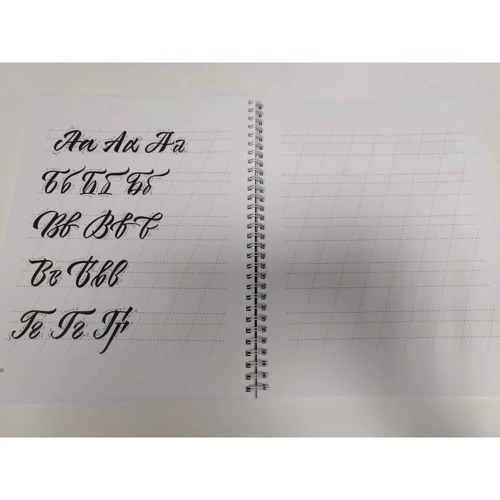 Аа Аа Аа
Бб Бб Бб
Вв Ввв
Вв Ввв
Гг Гг Гг